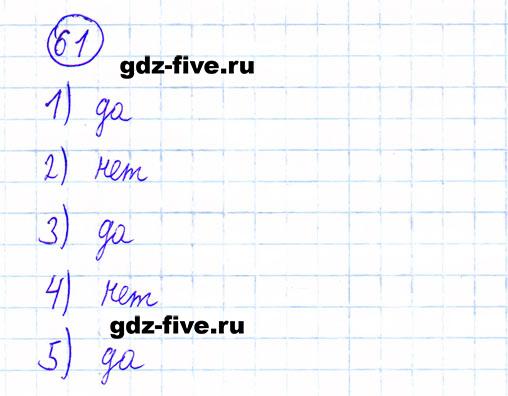 61
gdz-five.ru
1) да
2) нет
3) да
4) нет
gdz-five.ru
5) да